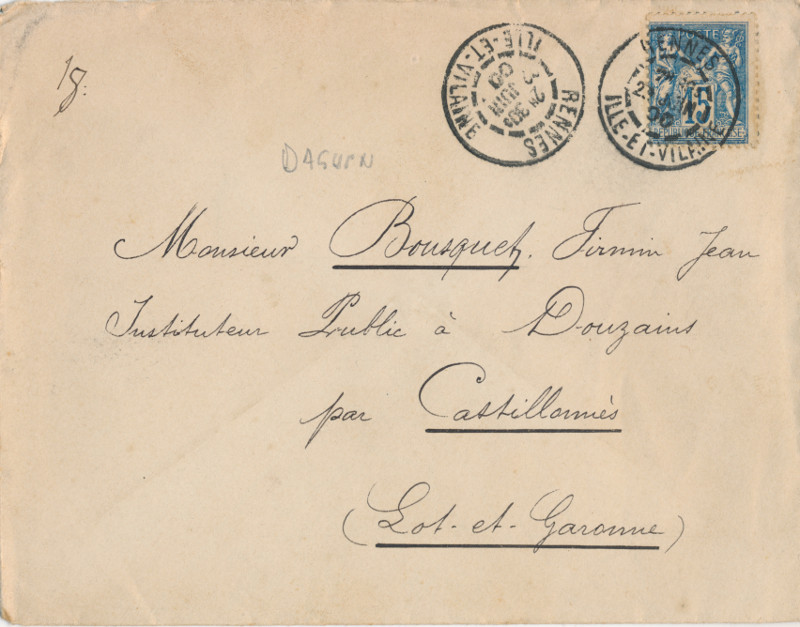 18.
RENNES
ILLE-ET-VILAINE
3
2E 30
JUIN
00
RENNES
ILLE-ET-VILAINE
POSTE
15
DAGUIN
Monsieur Bousquet, Firmin Jean
Instituteur Public à Douzains
par Castillonnès
(Lot-et-Garonne)